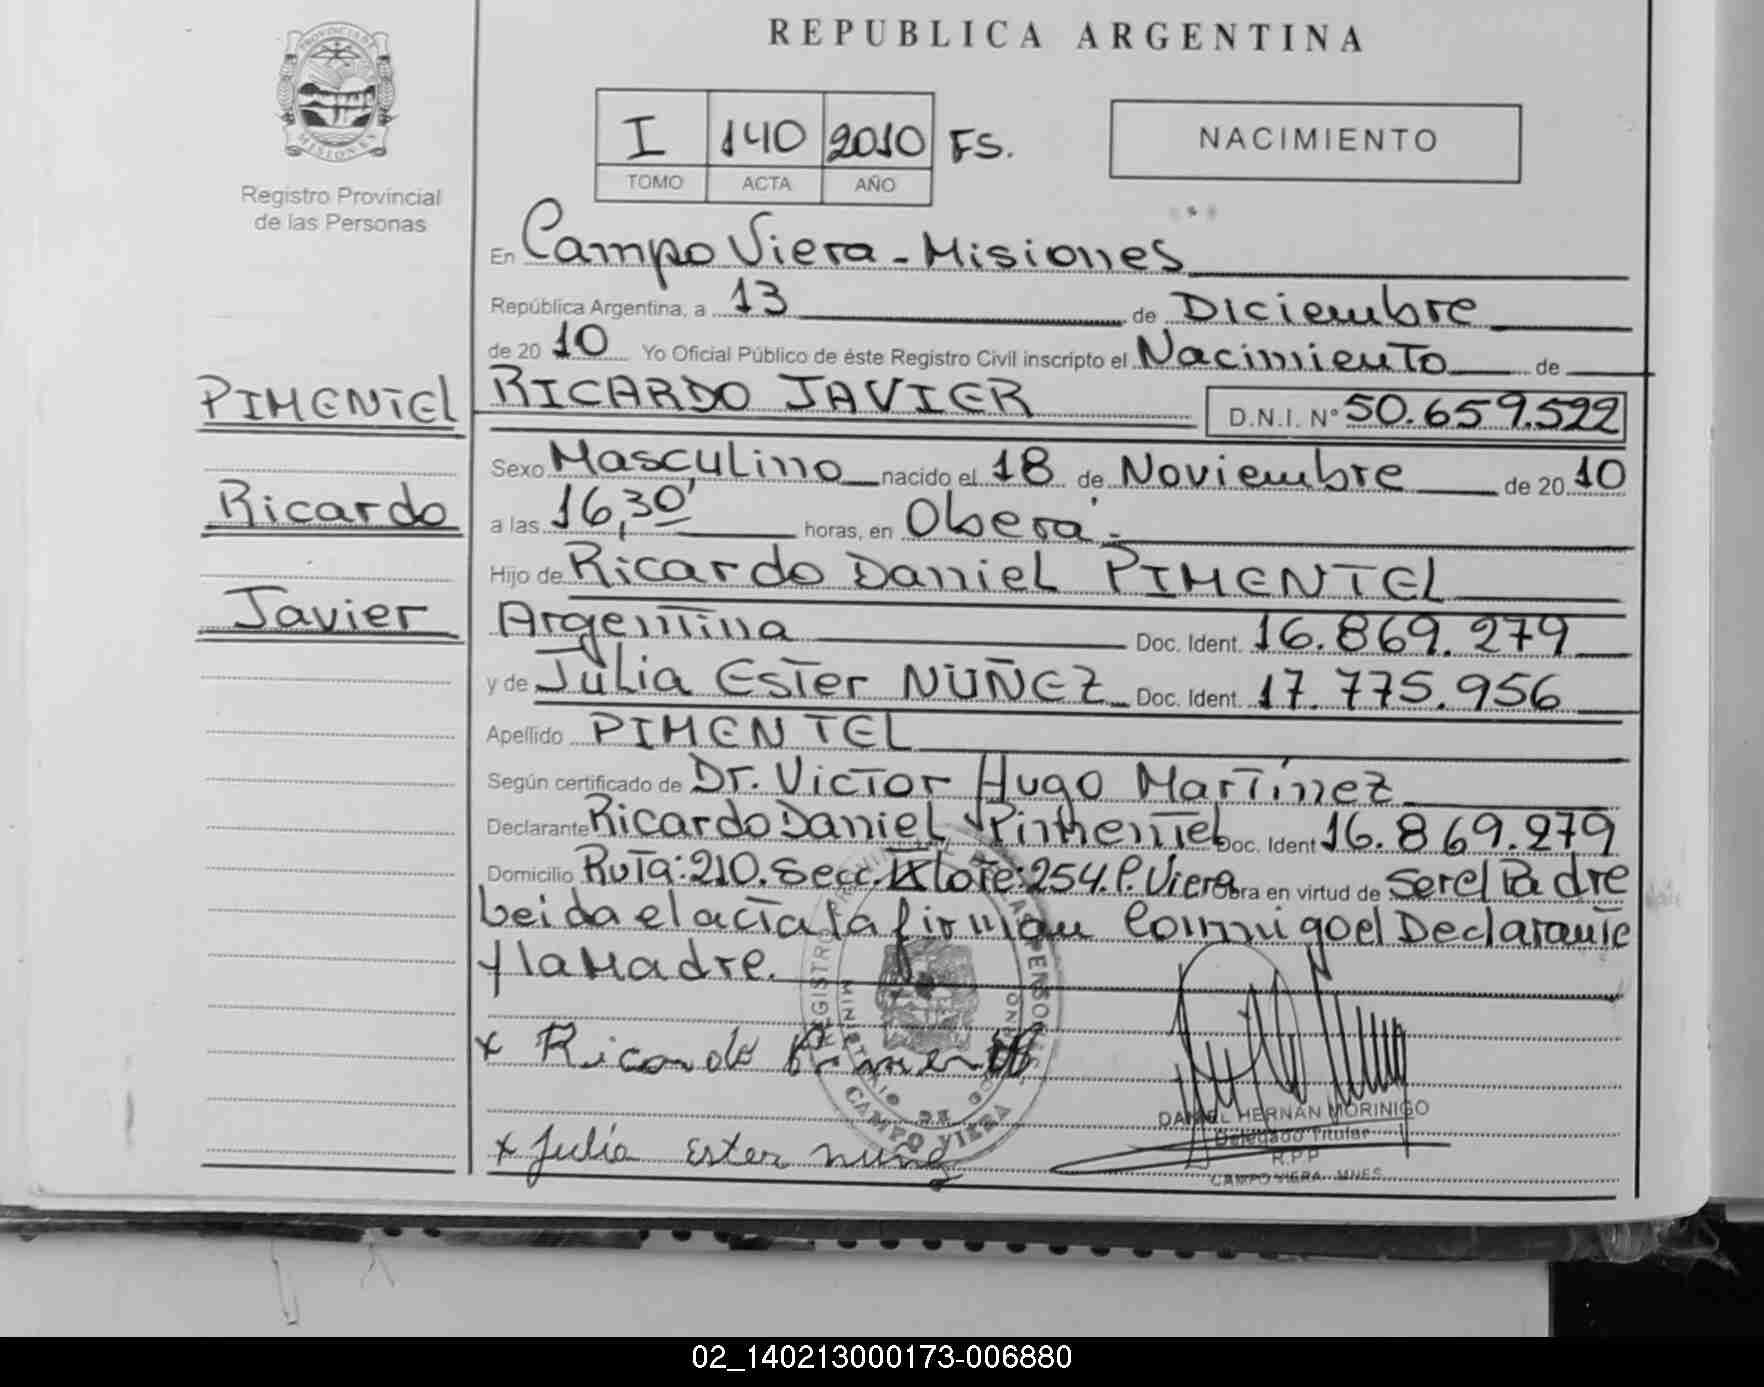 REPUBLICA ARGENTINA
PROVINCIA DE MISIONES
Registro Provincial
de las Personas
I 140 2010 FS.
TOMO ACTA AÑO
NACIMIENTO
En Campo Viera - Misiones
República Argentina, a 13 de Diciembre
de 20 10 Yo Oficial Público de éste Registro Civil inscripto el Nacimiento de
PIMENTEL
Ricardo
Javier
RICARDO JAVIER D.N.I. N° 50.659.522
Sexo Masculino nacido el 18 de Noviembre de 20 10
a las 16,30' horas, en Oberá.-
Hijo de Ricardo Daniel PIMENTEL
Argentina Doc. Ident. 16.869.279
y de Julia Ester NUÑEZ Doc. Ident. 17.775.956
Apellido PIMENTEL
Según certificado de Dr. Victor Hugo Martínez
Declarante Ricardo Daniel Pimentel Doc. Ident 16.869.279
Domicilio Ruta: 210. Secc. IX lote: 254. C. Viera Obra en virtud de ser el Padre
Leida el acta la firman Conmigo el Declarante
y la Madre.
x Ricardo Pimentel
x Julia Ester nuñez
REGISTRO DE LAS PERSONAS
MINISTERIO DE GOBIERNO
CAMPO VIERA
DANIEL HERNAN MORINIGO
Delegado Titular
R.P.P
CAMPO VIERA - MNES.
02_140213000173-006880